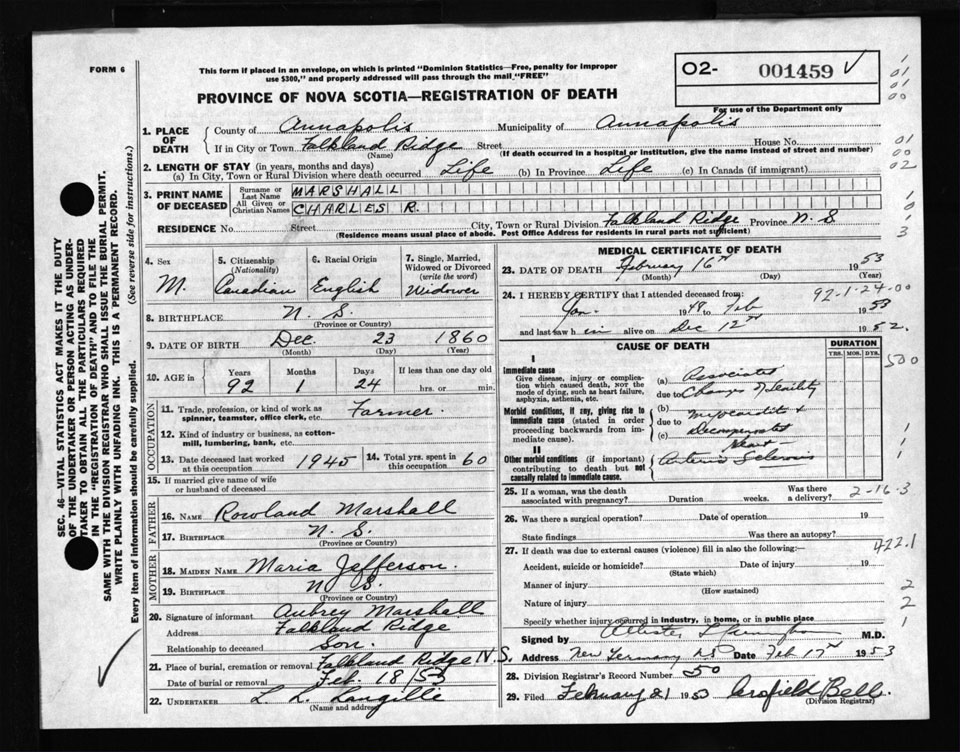 FORM 6
This form if placed in an envelope, on which is printed "Dominion Statistics—Free, penalty for improper
use $300," and properly addressed will pass through the mail "FREE"
PROVINCE OF NOVA SCOTIA—REGISTRATION OF DEATH
O2- 001459 ✓
For use of the Department only
1. PLACE OF DEATH
County of Annapolis Municipality of Annapolis
If in City or Town Falkland Ridge Street House No.
(Name) (If death occurred in a hospital or institution, give the name instead of street and number)
2. LENGTH OF STAY (in years, months and days)
(a) In City, Town or Rural Division where death occurred Life (b) In Province Life (c) In Canada (if immigrant)
3. PRINT NAME OF DECEASED
Surname or Last Name MARSHALL
All Given or Christian Names CHARLES R.
RESIDENCE No. Street City, Town or Rural Division Falkland Ridge Province N.S.
(Residence means usual place of abode. Post Office Address for residents in rural parts not sufficient)
4. Sex M.
5. Citizenship (Nationality) Canadian
6. Racial Origin English
7. Single, Married, Widowed or Divorced (write the word) Widower
8. BIRTHPLACE N. S.
(Province or Country)
9. DATE OF BIRTH Dec. 23 1860
(Month) (Day) (Year)
10. AGE in Years 92 Months 1 Days 24 If less than one day old hrs. or min.
OCCUPATION
11. Trade, profession, or kind of work as spinner, teamster, office clerk, etc. Farmer.
12. Kind of industry or business, as cotton-mill, lumbering, bank, etc.
13. Date deceased last worked at this occupation 1945
14. Total yrs. spent in this occupation 60
15. If married give name of wife or husband of deceased
FATHER
16. Name Rowland Marshall
17. Birthplace N. S.
(Province or Country)
MOTHER
18. Maiden Name Maria Jefferson.
19. Birthplace N. S.
(Province or Country)
20. Signature of informant Aubrey Marshall
Address Falkland Ridge
Relationship to deceased Son
21. Place of burial, cremation or removal Falkland Ridge N.S.
Date of burial or removal Feb. 18/53
22. Undertaker L. L. Langille
(Name and address)
MEDICAL CERTIFICATE OF DEATH
23. DATE OF DEATH February 16th 1953
(Month) (Day) (Year)
24. I HEREBY CERTIFY that I attended deceased from:
92-1-24-00
Jan. 1948 to Feb 1953
and last saw h im alive on Dec 12th 1952.
CAUSE OF DEATH
DURATION
YRS. MOS. DYS.
I
Immediate cause
Give disease, injury or complication which caused death, not the mode of dying, such as heart failure, asphyxia, asthenia, etc.
(a) Associated
due to Changes of senility
Morbid conditions, if any, giving rise to immediate cause (stated in order proceeding backwards from immediate cause).
(b) Myocarditis
due to Decompensated
(c) Heart
II
Other morbid conditions (if important) contributing to death but not causally related to immediate cause.
Arterio Sclerosis
500
25. If a woman, was the death associated with pregnancy? Duration weeks. Was there a delivery?
2-16-3
26. Was there a surgical operation? Date of operation 19
State findings Was there an autopsy?
27. If death was due to external causes (violence) fill in also the following:—
422.1
Accident, suicide or homicide? Date of injury 19
(State which)
Manner of injury
(How sustained)
Nature of injury
Specify whether injury occurred in industry, in home, or in public place
Signed by M.D.
Address New Germany NS Date Feb 17th 1953
28. Division Registrar's Record Number 50
29. Filed February 21 1953 Crofield Bell.
(Division Registrar)
SEC. 46—VITAL STATISTICS ACT MAKES IT THE DUTY
OF THE UNDERTAKER OR PERSON ACTING AS UNDER-
TAKER TO OBTAIN ALL THE PARTICULARS REQUIRED
IN THE "REGISTRATION OF DEATH" AND TO FILE THE
SAME WITH THE DIVISION REGISTRAR WHO SHALL ISSUE THE BURIAL PERMIT.
WRITE PLAINLY WITH UNFADING INK. THIS IS A PERMANENT RECORD.
Every item of information should be carefully supplied. (See reverse side for instructions.)